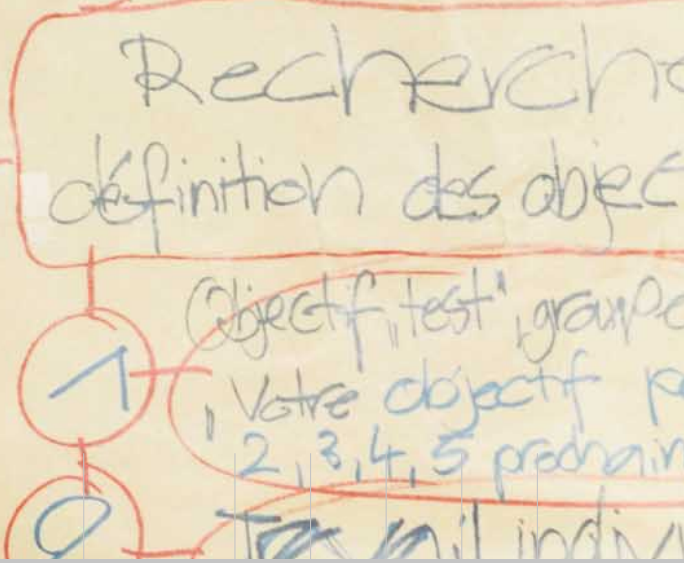 Recherche
définition des objec
1
Objectif „test", groupe
, Votre objectif p
2, 3, 4, 5 prochain
2
Travail indiv